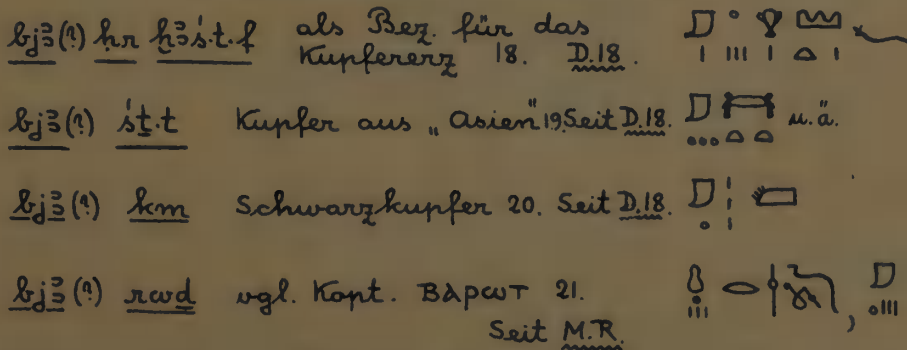 bjꜣ(?) ḥr ḫꜣś.t.f als Bez. für das
Kupfererz 18. D.18.
bjꜣ(?) śṯ.t Kupfer aus „Asien" 19. Seit D.18. u.ä.
bjꜣ(?) km Schwarzkupfer 20. Seit D.18.
bjꜣ(?) rwḏ vgl. Kopt. ⲂⲀⲢⲰⲦ 21.
Seit M.R.